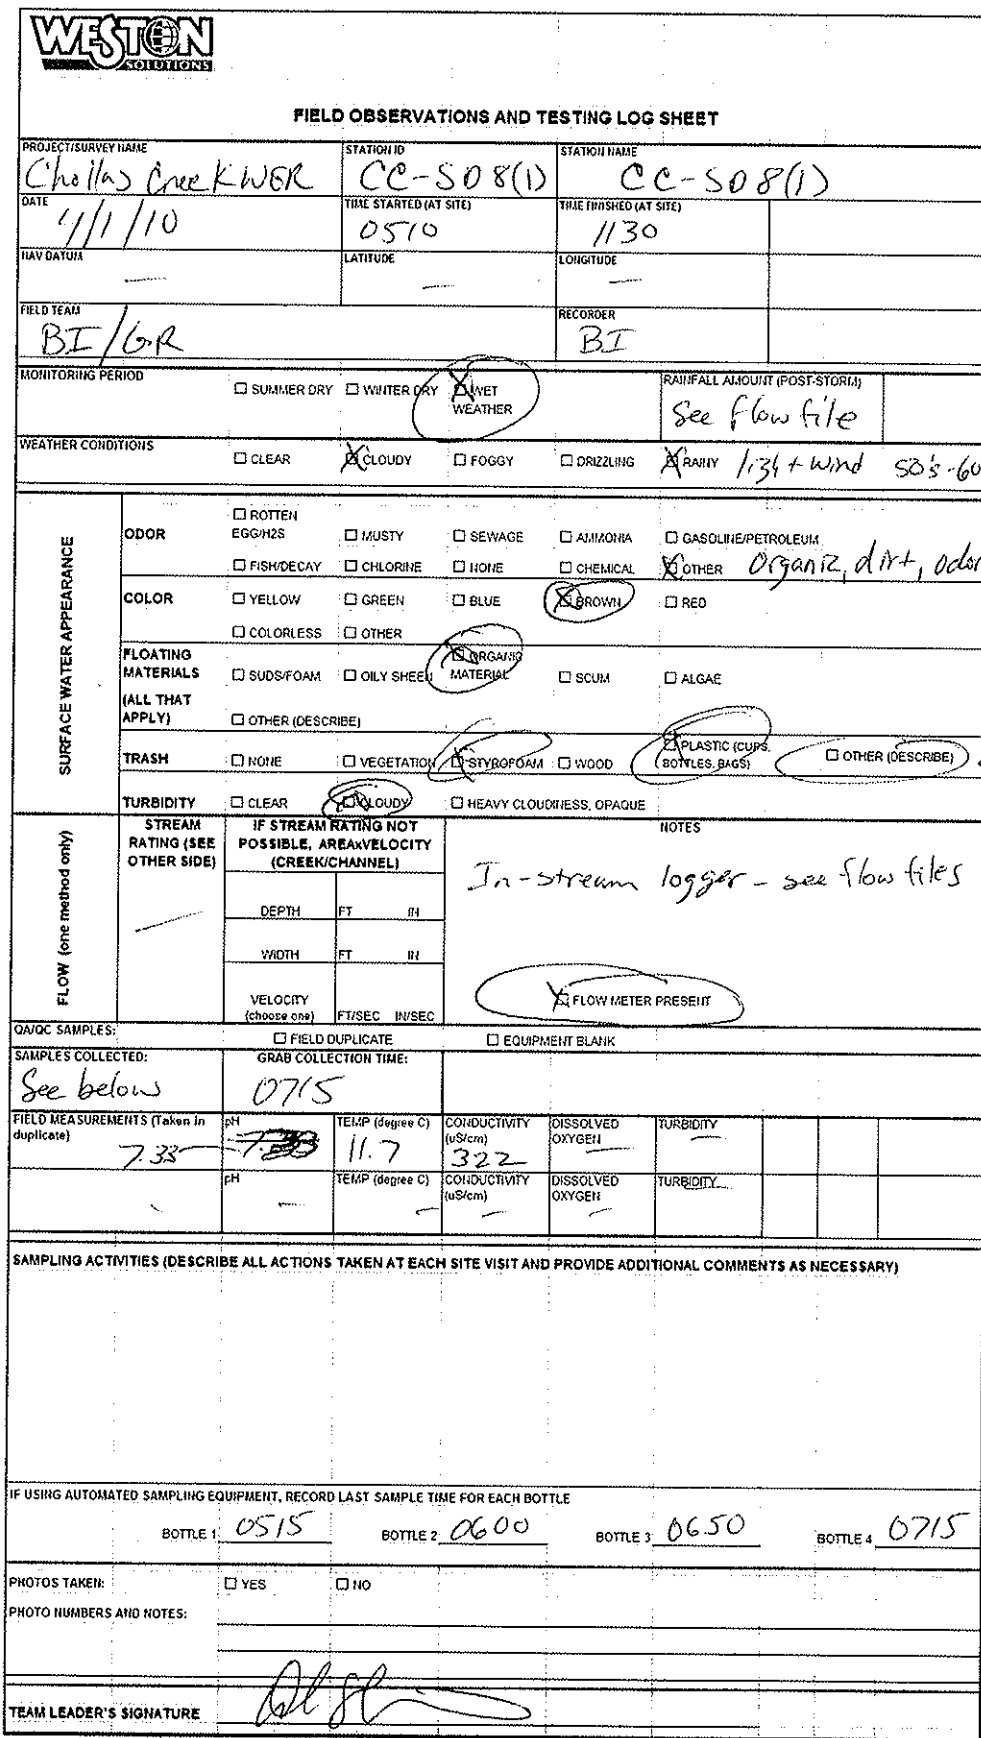 WESTON
SOLUTIONS
FIELD OBSERVATIONS AND TESTING LOG SHEET
PROJECT/SURVEY NAME STATION ID STATION NAME
Chollas Creek WER CC-SD8(1) CC-SD8(1)
DATE TIME STARTED (AT SITE) TIME FINISHED (AT SITE)
/1/10 0510 1130
NAV DATUM LATITUDE LONGITUDE
— — —
FIELD TEAM RECORDER
BI/GR BI
MONITORING PERIOD ☐ SUMMER DRY ☐ WINTER DRY ☒ WET WEATHER RAINFALL AMOUNT (POST-STORM)
See flow file
WEATHER CONDITIONS ☐ CLEAR ☒ CLOUDY ☐ FOGGY ☐ DRIZZLING ☒ RAINY + wind 50's-60
SURFACE WATER APPEARANCE
ODOR ☐ ROTTEN EGG/H2S ☐ MUSTY ☐ SEWAGE ☐ AMMONIA ☐ GASOLINE/PETROLEUM
☐ FISH/DECAY ☐ CHLORINE ☐ NONE ☐ CHEMICAL ☒ OTHER Organic, dirt, odor
COLOR ☐ YELLOW ☐ GREEN ☐ BLUE ☒ BROWN ☐ RED
☐ COLORLESS ☐ OTHER
FLOATING MATERIALS (ALL THAT APPLY) ☐ SUDS/FOAM ☐ OILY SHEEN ☒ ORGANIC MATERIAL ☐ SCUM ☐ ALGAE
☐ OTHER (DESCRIBE)
TRASH ☐ NONE ☐ VEGETATION ☒ STYROFOAM ☐ WOOD ☒ PLASTIC (CUPS, BOTTLES, BAGS) ☐ OTHER (DESCRIBE)
TURBIDITY ☐ CLEAR ☒ CLOUDY ☐ HEAVY CLOUDINESS, OPAQUE
FLOW (one method only)
STREAM RATING (SEE OTHER SIDE) IF STREAM RATING NOT POSSIBLE, AREAxVELOCITY (CREEK/CHANNEL) NOTES
In-stream logger - see flow files
DEPTH FT IN
WIDTH FT IN
VELOCITY (choose one) FT/SEC IN/SEC ☒ FLOW METER PRESENT
QA/QC SAMPLES: ☐ FIELD DUPLICATE ☐ EQUIPMENT BLANK
SAMPLES COLLECTED: GRAB COLLECTION TIME:
See below 0715
FIELD MEASUREMENTS (Taken in duplicate) pH TEMP (degree C) CONDUCTIVITY (uS/cm) DISSOLVED OXYGEN TURBIDITY
7.33 11.7 322 — —
pH TEMP (degree C) CONDUCTIVITY (uS/cm) DISSOLVED OXYGEN TURBIDITY
— — — — —
SAMPLING ACTIVITIES (DESCRIBE ALL ACTIONS TAKEN AT EACH SITE VISIT AND PROVIDE ADDITIONAL COMMENTS AS NECESSARY)
IF USING AUTOMATED SAMPLING EQUIPMENT, RECORD LAST SAMPLE TIME FOR EACH BOTTLE
BOTTLE 1 0515 BOTTLE 2 0600 BOTTLE 3 0650 BOTTLE 4 0715
PHOTOS TAKEN: ☐ YES ☐ NO
PHOTO NUMBERS AND NOTES:
TEAM LEADER'S SIGNATURE